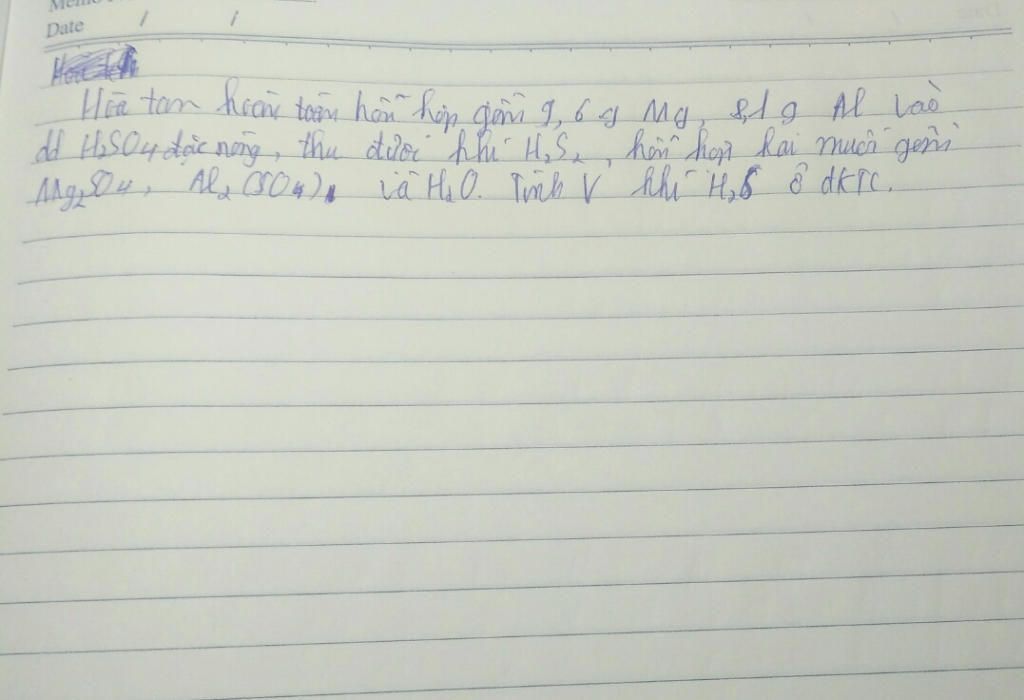 Date / /
Hòa tan hoàn toàn hỗn hợp gồm 9,6 g Mg, 8,1 g Al vào
dd H2SO4 đặc nóng, thu được khí H2S2, hỗn hợp hai muối gồm
Mg2SO4, Al2(SO4) và H2O. Tính V khí H2S ở đKTC.